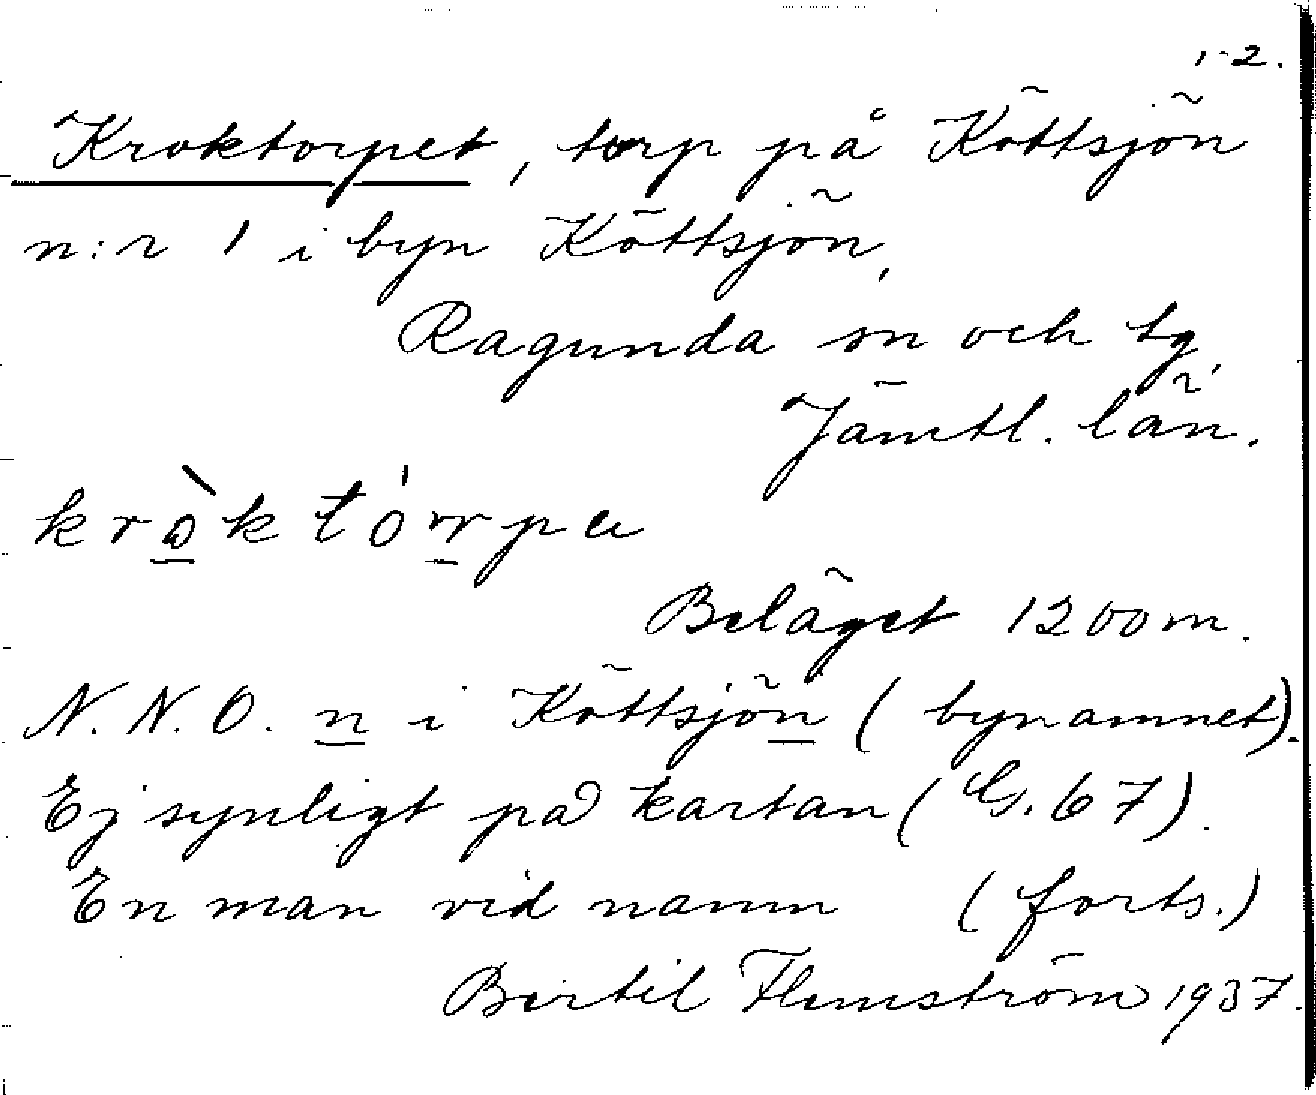 1-2.
Kroktorpet, torp på Köttsjön
n:r 1 i byn Köttsjön,
Ragunda sn och tg,
Jämtl. län.
kròktórrpa
Beläget 1200 m.
N.N.O. n i Köttsjön (bynamnet).
Ej synligt på kartan (G. 67).
En man vid namn (forts.)
Bertil Flemström 1937.